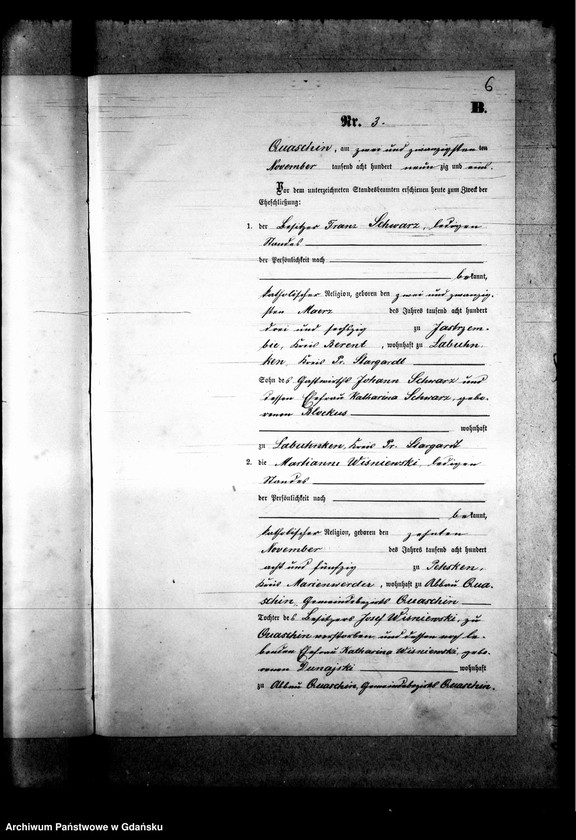 6
B.
Nr. 3.
Quaschin, am zwei und zwanzigsten ten
November tausend acht hundert neun zig und eins.
Vor dem unterzeichneten Standesbeamten erschienen heute zum Zweck der
Eheschließung:
1. der Besitzer Franz Schwarz, ledigen
Standes
der Persönlichkeit nach
bekannt,
katholischer Religion, geboren den zwei und zwanzig-
sten Maerz des Jahres tausend acht hundert
drei und sechszig zu Jastrzem-
bie, Kreis Berent, wohnhaft zu Labuhn
ken, Kreis Pr. Stargardt
Sohn des Gastwirths Johann Schwarz und
dessen Ehefrau Katharina Schwarz, gebo-
renen Blockus
wohnhaft
zu Labuhnken, Kreis Pr. Stargardt
2. die Marianne Wisniewski, ledigen
Standes
der Persönlichkeit nach
bekannt,
katholischer Religion, geboren den zehnten
November des Jahres tausend acht hundert
acht und fünfzig zu Pehsken,
Kreis Marienwerder, wohnhaft zu Abbau Qua-
schin, Gemeindebezirks Quaschin
Tochter des Besitzers Josef Wisniewski, zu
Quaschin verstorben und dessen noch le-
benden Ehefrau Katharina Wisniewski, gebo-
renen Dunajski wohnhaft
zu Abbau Quaschin, Gemeindebezirks Quaschin.
Archiwum Państwowe w Gdańsku